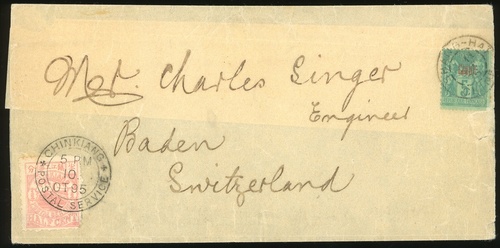 Mr. Charles Singer
Engineer
Baden
Switzerland
CHINKIANG
5 PM
10
OT 95
POSTAL SERVICE
5